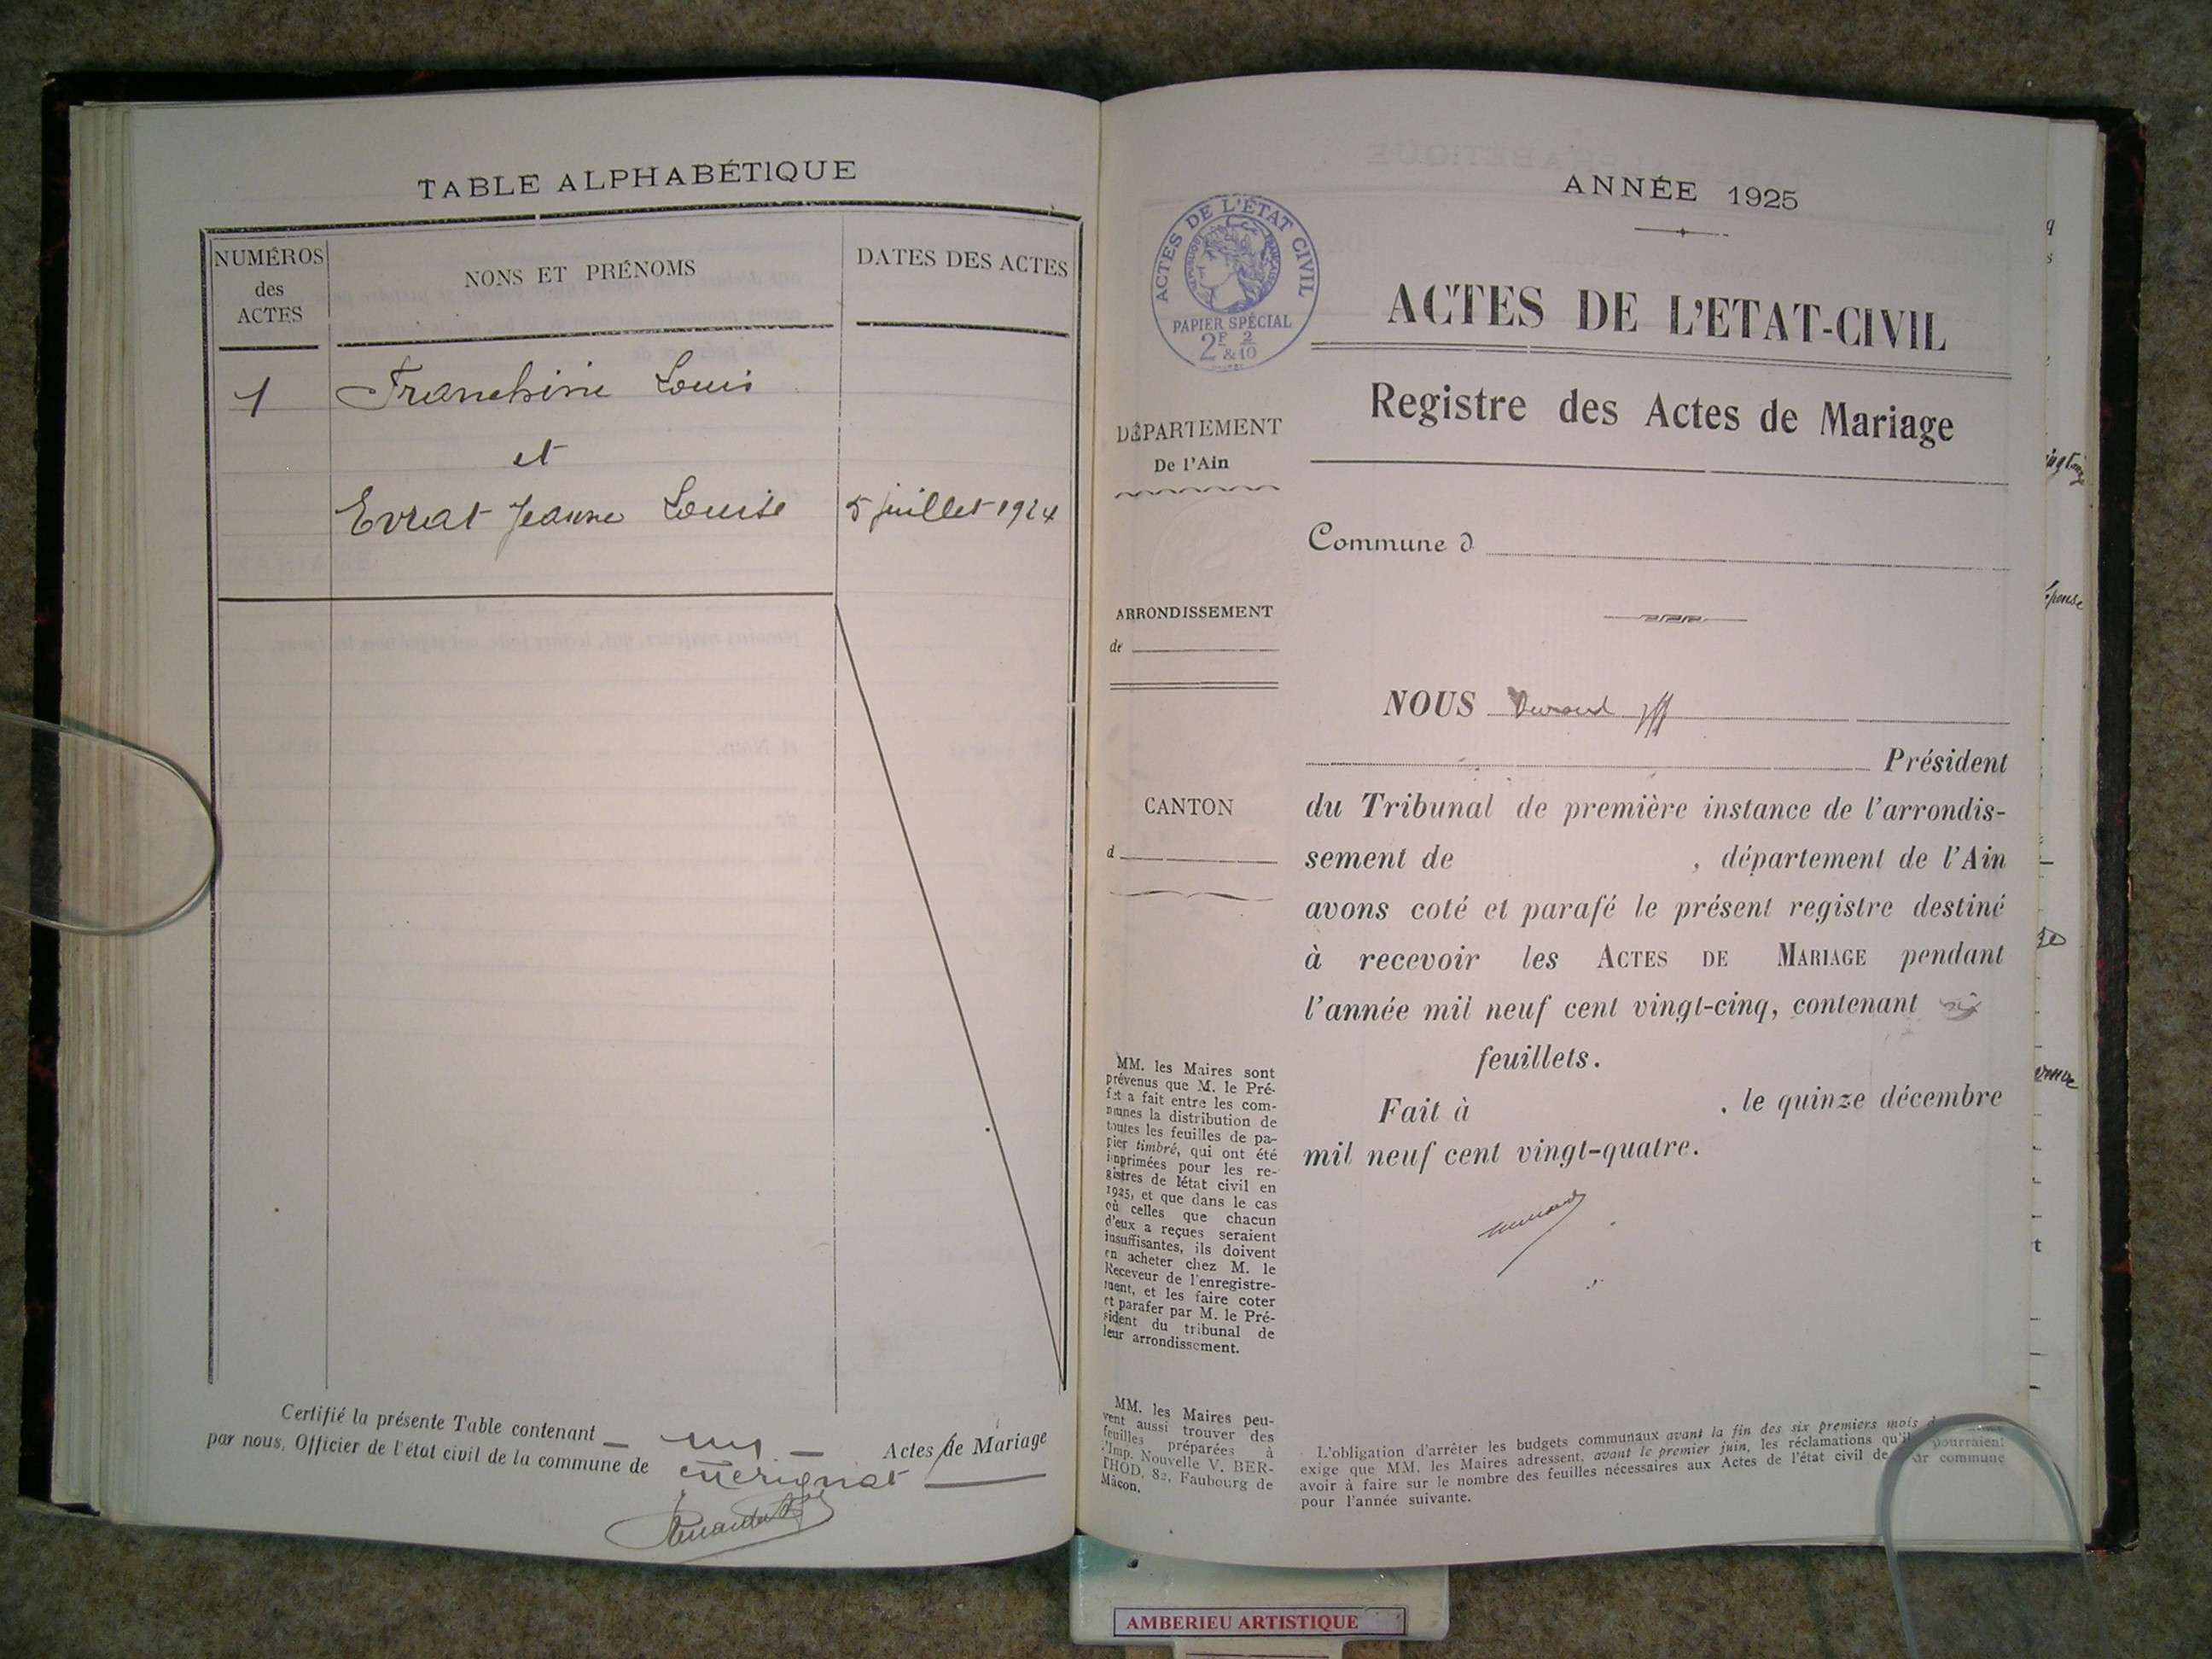 TABLE ALPHABÉTIQUE
NUMÉROS
des
ACTES
NONS ET PRÉNOMS
DATES DES ACTES
1 Franchini Louis
et
Evrat Jeanne Louise 5 juillet 1924
Certifié la présente Table contenant _ un _ Actes de Mariage
par nous, Officier de l'état civil de la commune de Cuerignat
ANNÉE 1925
ACTES DE L'ÉTAT CIVIL
RÉPUBLIQUE FRANÇAISE
PAPIER SPÉCIAL
2F 2
& 10
ACTES DE L'ETAT-CIVIL
Registre des Actes de Mariage
DÉPARTEMENT
De l'Ain
Commune d
ARRONDISSEMENT
de
CANTON
d
NOUS Durand
Président
du Tribunal de première instance de l'arrondis-
sement de , département de l'Ain
avons coté et parafé le présent registre destiné
à recevoir les ACTES DE MARIAGE pendant
l'année mil neuf cent vingt-cinq, contenant six
feuillets.
Fait à , le quinze décembre
mil neuf cent vingt-quatre.
MM. les Maires sont
prévenus que M. le Pré-
fet a fait entre les com-
munes la distribution de
toutes les feuilles de pa-
pier timbré, qui ont été
imprimées pour les re-
gistres de létat civil en
1925, et que dans le cas
où celles que chacun
d'eux a reçues seraient
insuffisantes, ils doivent
en acheter chez M. le
Receveur de l'enregistre-
ment, et les faire coter
et parafer par M. le Pré-
sident du tribunal de
leur arrondissement.
MM. les Maires peu-
vent aussi trouver des
feuilles préparées à
l'Imp. Nouvelle V. BER-
THOD, 82, Faubourg de
Mâcon.
L'obligation d'arrêter les budgets communaux avant la fin des six premiers mois
exige que MM. les Maires adressent, avant le premier juin, les réclamations qu'ils pourraient
avoir à faire sur le nombre des feuilles nécessaires aux Actes de l'état civil de commune
pour l'année suivante.
AMBERIEU ARTISTIQUE